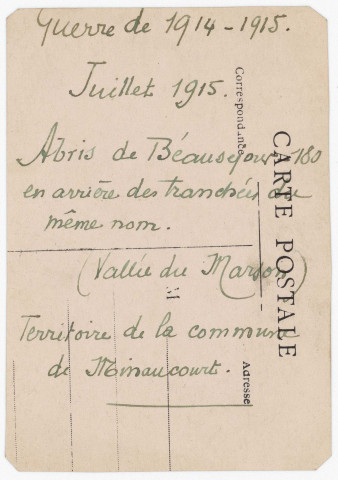 Guerre de 1914-1915.
Juillet 1915.
Abris de Béauséjour 180
en arrière des tranchées du
même nom.
(Vallée du Marson)
Territoire de la commune
de Minaucourt.
Correspondance
CARTE POSTALE
M
Adresse